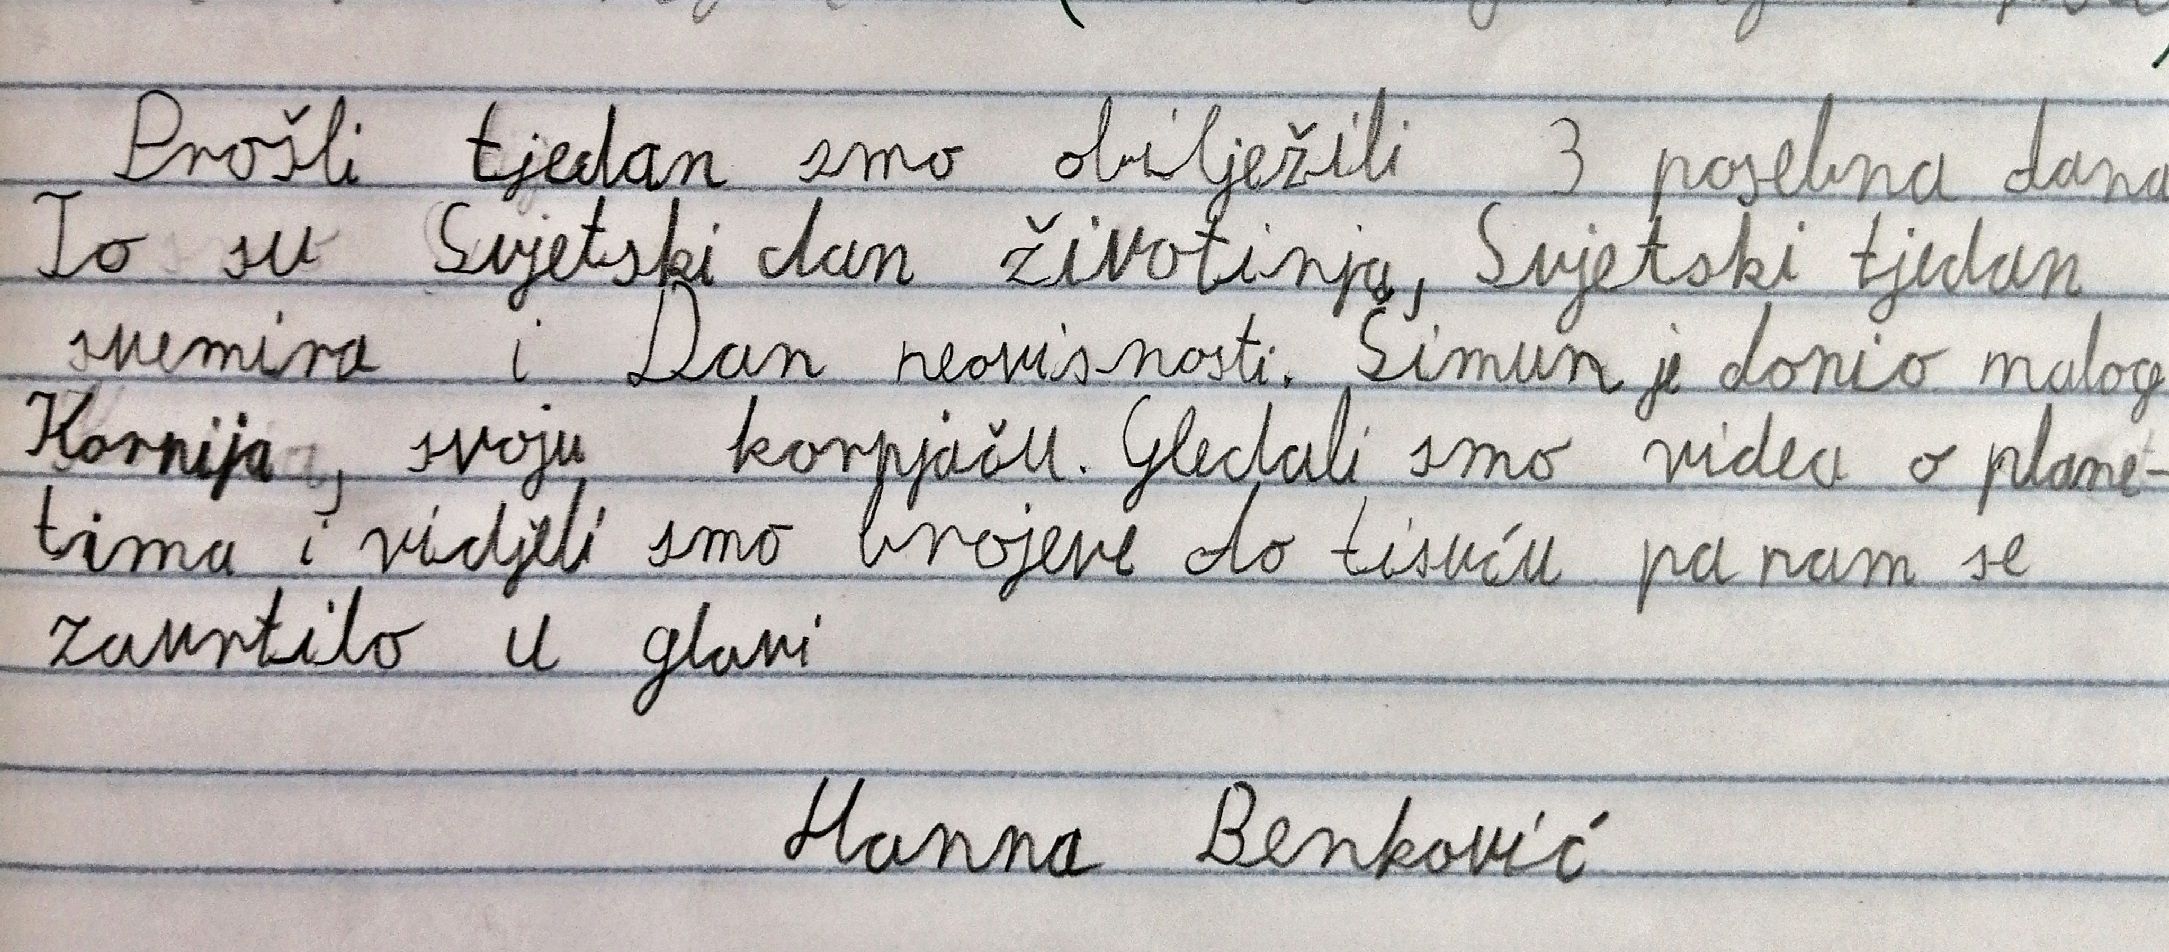 Prošli tjedan smo obilježili 3 posebna dana
To su Svjetski dan životinja, Svjetski tjedan
svemira i Dan neovisnosti. Šimun je donio malog
Kornija, svoju kornjaču. Gledali smo videa o plane-
tima i vidjeli smo brojeve do tisuću pa nam se
zavrtilo u glavi
Hanna Benković